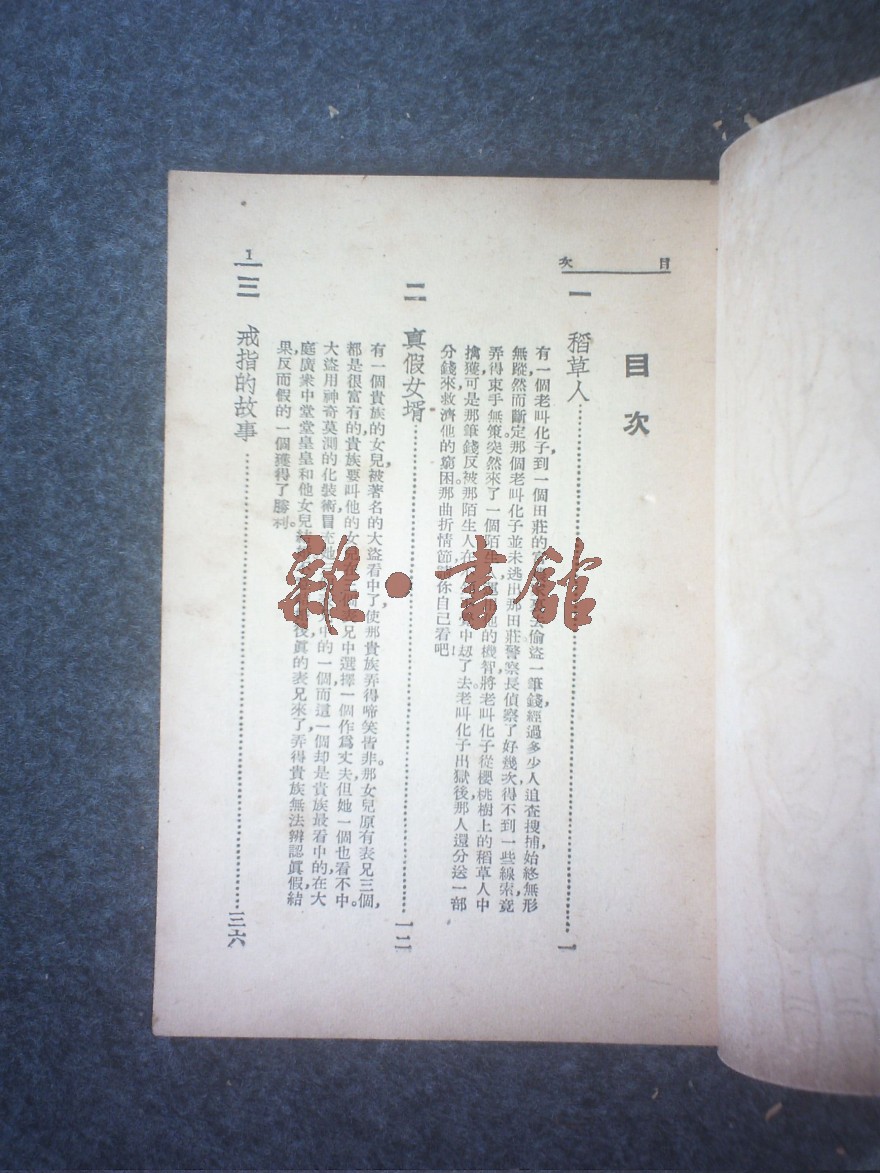 目次
目次
一 稻草人⋯⋯一
有一個老叫化子,到一個田莊的去偷盜一筆錢,經過多少人追查搜捕,始終無形
無蹤,然而斷定那個老叫化子並未逃出那田莊,警察長偵察了好幾次,得不到一些線索,竟
弄得束手無策。突然來了一個陌生人,他的機智,將老叫化子從櫻桃樹上的稻草人中
擒獲,可是那筆錢反被那陌生人在中刧了去。老叫化子出獄後,那人還分送一部
分錢來救濟他的窮困。那曲折情節,你自己看吧!
二 真假女壻⋯⋯一二
有一個貴族的女兒,被著名的大盜看中了,使那貴族弄得啼笑皆非。那女兒原有表兄三個,
都是很富有的貴族,要叫他的女兒中選擇一個作為丈夫,但她一個也看不中。
大盜用神奇莫測的化裝術,冒充她中的一個,而這一個却是貴族最看中的,在大
庭廣衆中堂堂皇皇和他女兒結後真的表兄來了,弄得貴族無法辨認眞假,結
果反而假的一個獲得了勝利。
三 戒指的故事⋯⋯三六
1
雜·書館